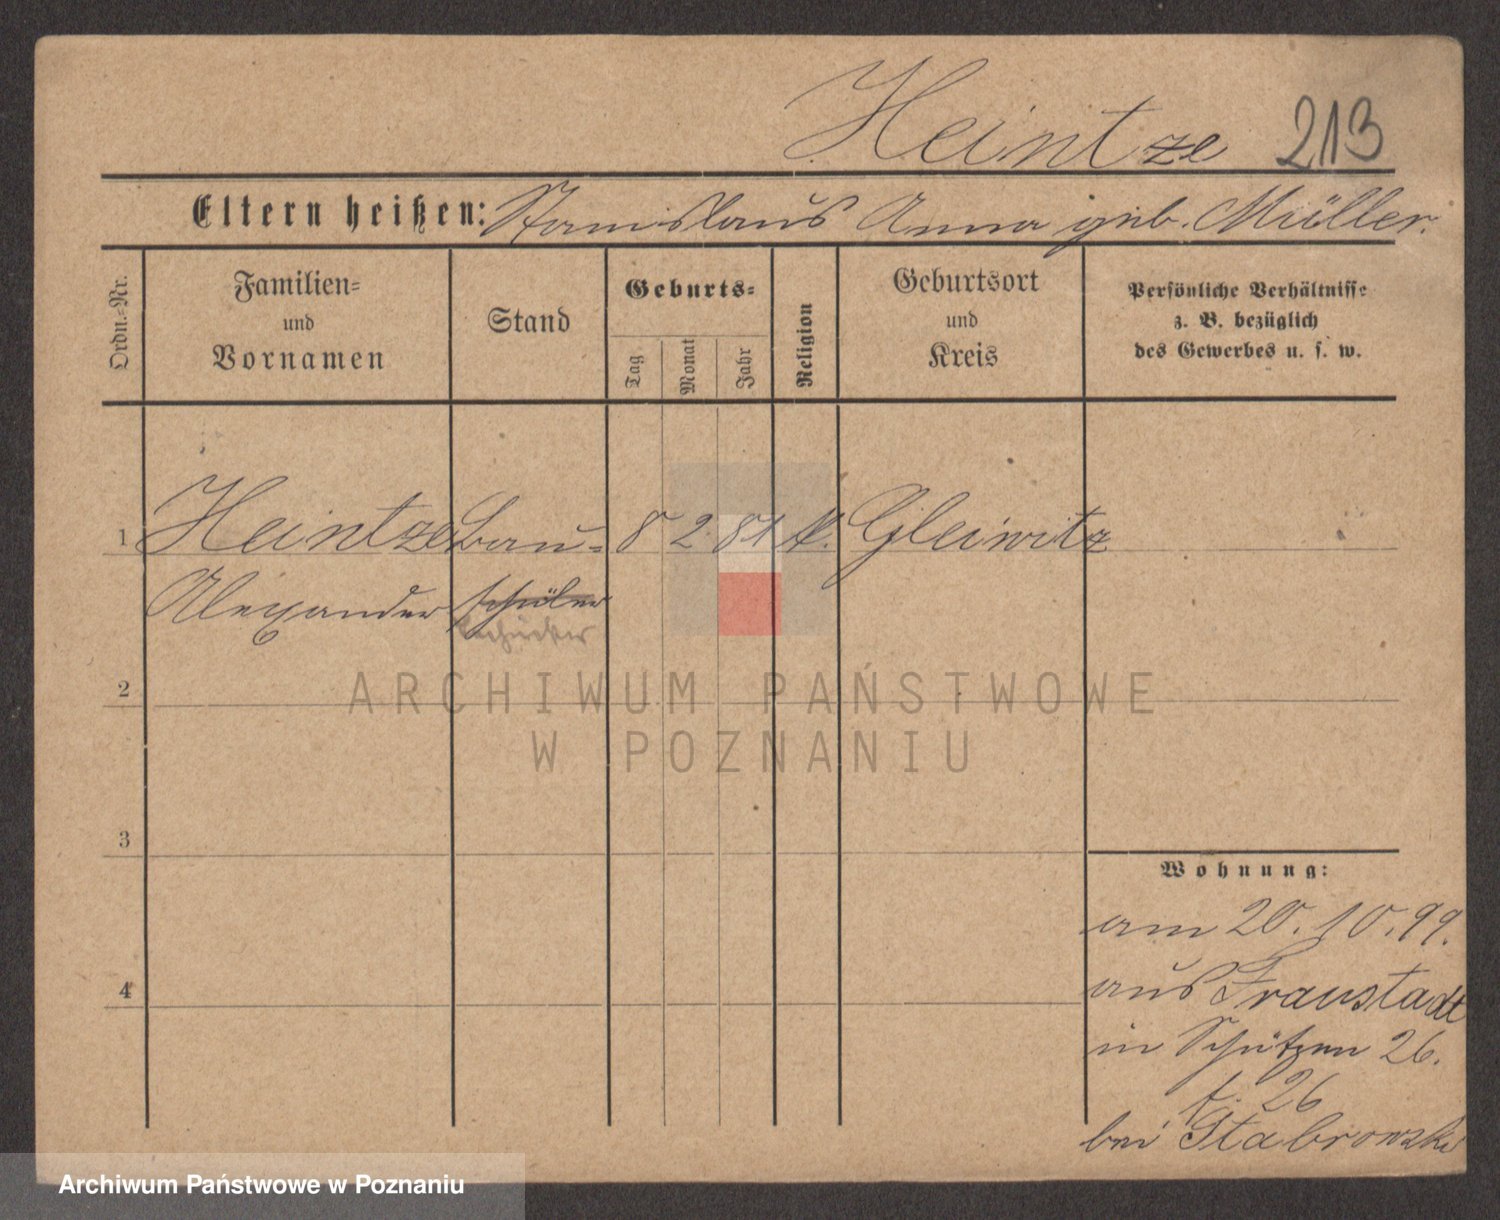 Heintze 213
Eltern heißen: Stanislaus Anna geb. Müller.
Ordn.=Nr.
Familien=
und
Vornamen
Stand
Geburts=
Tag
Monat
Jahr
Religion
Geburtsort
und
Kreis
Persönliche Verhältnisse
z. B. bezüglich
des Gewerbes u. s. w.
1 Heintze Bau= 8 2 81 k. Gleiwitz
Alexander schüler
2
3
4
Wohnung:
am 20.10.99.
aus Fraustadt
in Schützen 26.
f. 26
bei Stabrowski
ARCHIWUM PAŃSTWOWE
W POZNANIU
Archiwum Państwowe w Poznaniu